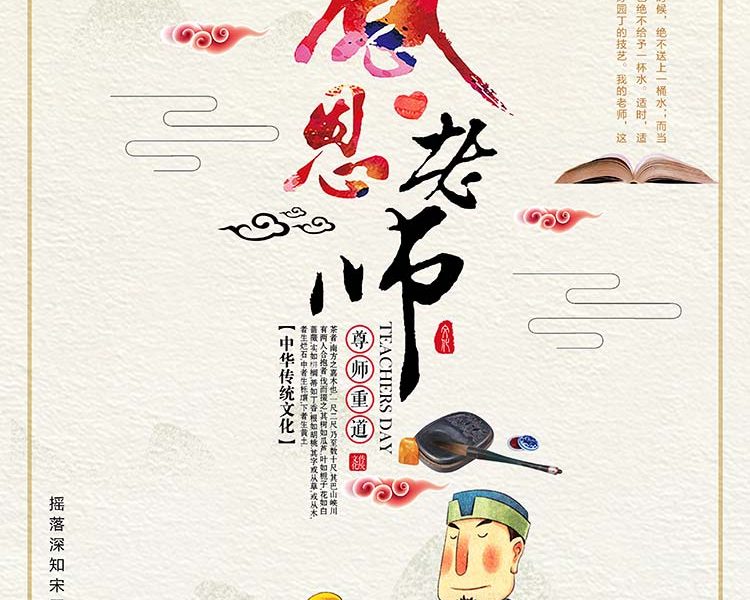 感恩
老师
候，绝不送上一桶水；而当
绝不给予一杯水。适时，适
园丁的技艺。我的老师，这
文化
TEACHERS DAY
尊师重道
传统文化
茶者,南方之嘉木也,一尺二尺,乃至数十尺,其巴山峡川
有两人合抱者,伐而掇之,其树如瓜芦,叶如栀子,花如白
蔷薇,实如栟榈,蒂如丁香,根如胡桃,其字或从草,或从木,
者生烂石,中者生栎壤,下者生黄土
【中华传统文化】
摇落深知宋